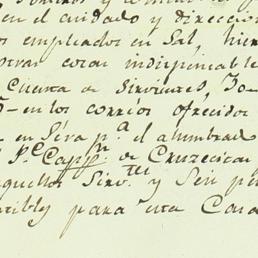 en el cuidado y direccion
los empleados en Sal, hier
otras cosas indispensable
Cuenta de Sirvientes, 30-
5-en los corrios ofrecidos
en Sera pª el alumbrado
Pe Capp.n de Cruzecitas
aquellos Sirv.tes y Seis p
tibles para esta Casa